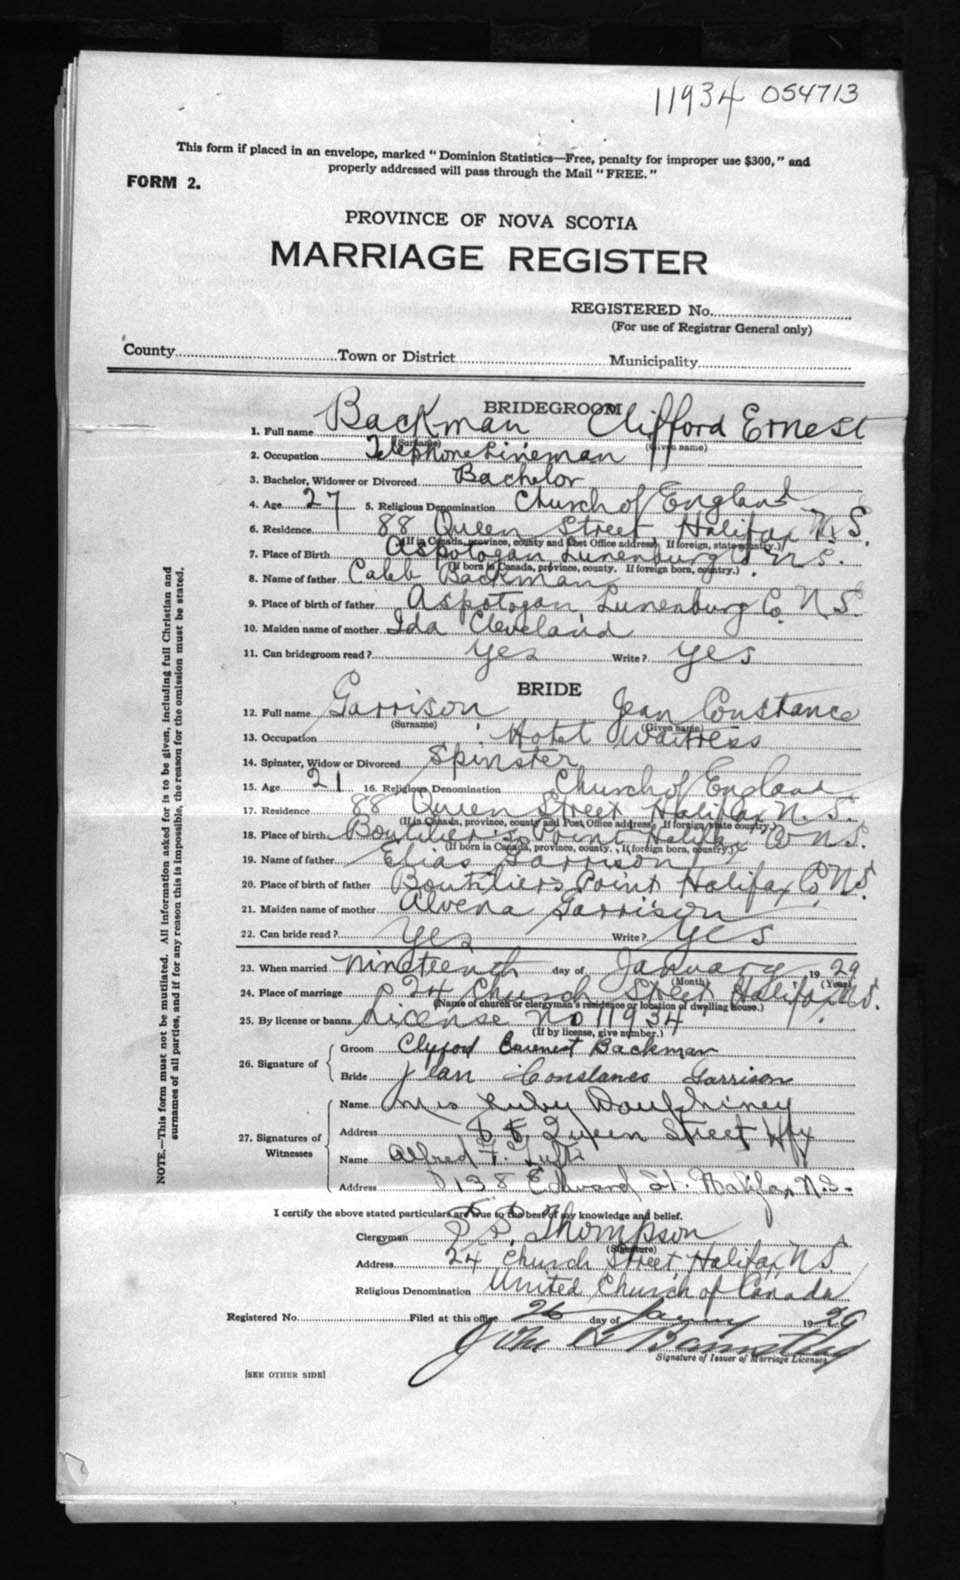 11934 054713
This form if placed in an envelope, marked "Dominion Statistics—Free, penalty for improper use $300," and
properly addressed will pass through the Mail "FREE."
FORM 2.
PROVINCE OF NOVA SCOTIA
MARRIAGE REGISTER
REGISTERED No.
(For use of Registrar General only)
County Town or District Municipality
BRIDEGROOM
1. Full name Backman Clifford Ernest
(Surname) (Given name)
2. Occupation Telephone Lineman
3. Bachelor, Widower or Divorced Bachelor
4. Age 27 5. Religious Denomination Church of England
6. Residence 88 Queen Street Halifax N.S.
(If in Canada, province, county and Post Office address. If foreign, state country.)
7. Place of Birth Aspotogan Lunenburg Co. N.S.
(If born in Canada, province, county. If foreign born, country.)
8. Name of father Caleb Backman
9. Place of birth of father Aspotogan Lunenburg Co. N.S.
10. Maiden name of mother Ida Cleveland
11. Can bridegroom read? yes Write? yes
BRIDE
12. Full name Garrison Jean Constance
(Surname) (Given name)
13. Occupation Hotel Waitress
14. Spinster, Widow or Divorced Spinster
15. Age 21 16. Religious Denomination Church of England
17. Residence 88 Queen Street Halifax N.S.
(If in Canada, province, county and Post Office address. If foreign, state country.)
18. Place of birth Boutilier's Point Halifax Co N.S.
(If born in Canada, province, county. If foreign born, country.)
19. Name of father Elias Garrison
20. Place of birth of father Boutilier's Point Halifax Co. N.S.
21. Maiden name of mother Alvena Garrison
22. Can bride read? Yes Write? Yes
23. When married Nineteenth day of January 1929
(Month) (Year)
24. Place of marriage 24 Church Street Halifax, N.S.
(Name of church or clergyman's residence or location of dwelling house.)
25. By license or banns License No 11934
(If by license, give number.)
26. Signature of Groom Clifford Earnest Backman
Bride Jean Constance Garrison
27. Signatures of Witnesses
Name Mrs Ruby Dauphiney
Address 88 Queen Street Hfx
Name Alfred F.
Address 138 Edward St. Halifax N.S.
I certify the above stated particulars are true to the best of my knowledge and belief.
Clergyman Thompson
(Signature)
Address 24 Church Street, Halifax, N.S.
Religious Denomination United Church of Canada
Registered No. Filed at this office 26 day of January 1929
John B
Signature of Issuer of Marriage Licenses
[SEE OTHER SIDE]
NOTE.—This form must not be mutilated. All information asked for is to be given, including full Christian and
surnames of all parties, and if for any reason this is impossible, the reason for the omission must be stated.